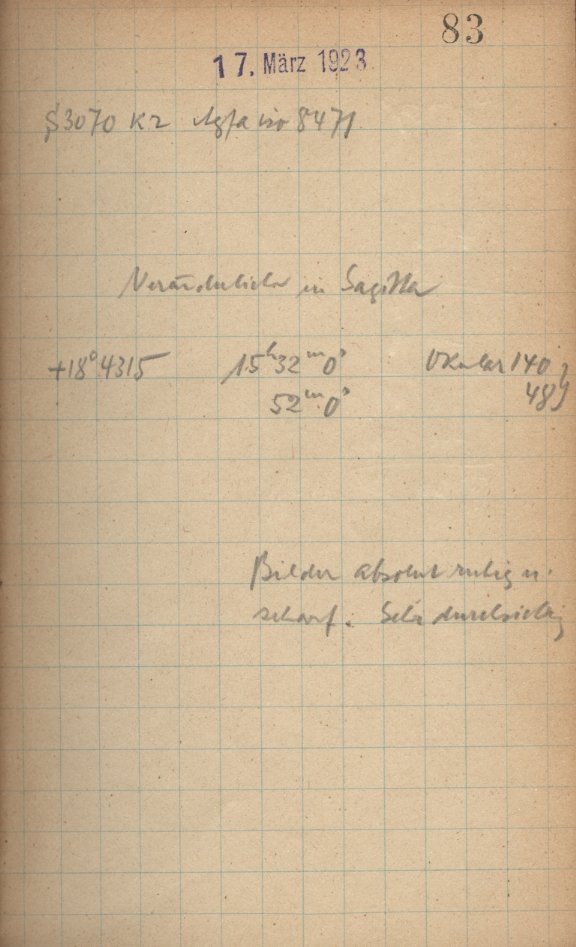 83
17. März 1923
S3070 K2 Agfa iso 8471
Veränderlicher in Sagitta
+18°4315 15ʰ32ᵐ0ˢ Okular 140
52ᵐ0ˢ 48
Bilder absolut ruhig u.
scharf. Sehr durchsichtig